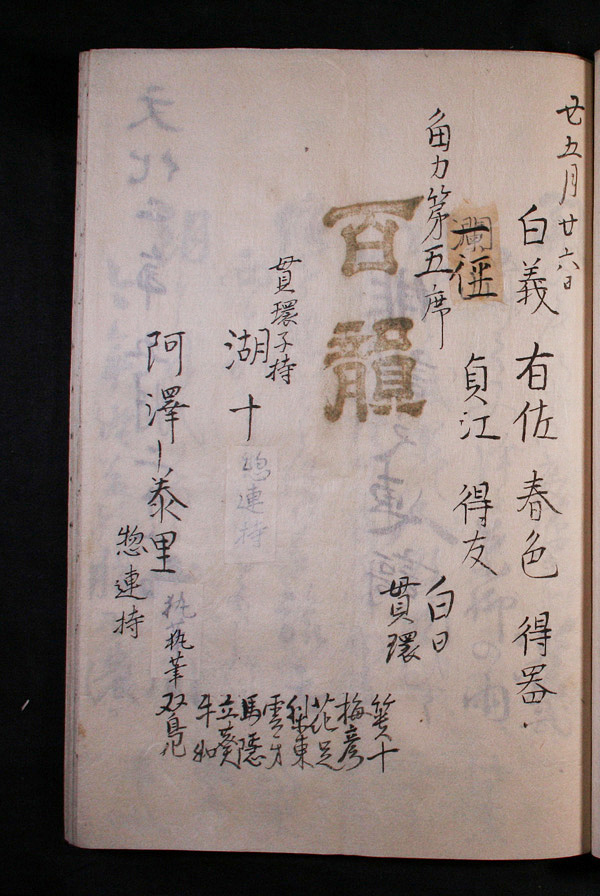 廿五月廿六日
白義 右佐 春色 得器
瀾
一徑 貞江 得友 白日
角力第五席 貫環
百韻
貫環子持
湖十 惣連持
阿澤ノ泰里
惣連持
執筆
双鳥
箕十
梅彦
花足
梨東
雲才
馬隠
立葵
牛和